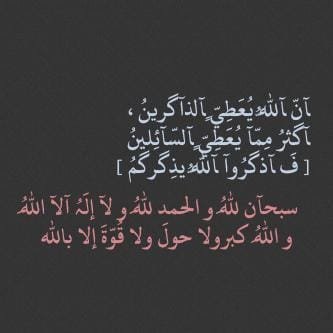 آنّ آللهُ يُعَطِيّ آلذآگرينُ ،
آگثرُ مِمّآ يُعَطِيّ آلسّآئِلينُ
[ فَ آذگرُوآ آللهُ يذِگرگمُ ]
سبحآن للهُ و الحمد للهُ و لآ إلَہُ آلآ اللهُ
و اللهُ كبرولا حولَ ولا قُوّةَ إلا بالله